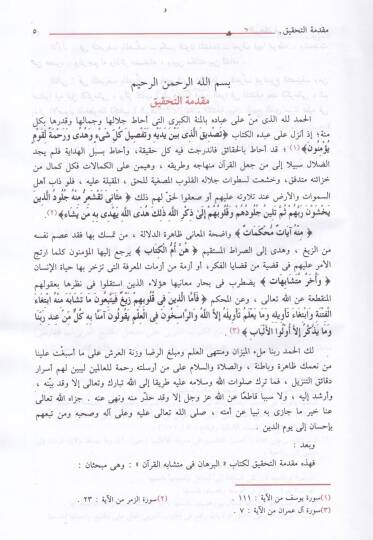 مقدمة التحقيق
٥
بسم الله الرحمن الرحيم
مقدمة التحقيق
الحمد لله الذى منّ على عباده بالمنة الكبرى التى أحاط جلالها وجمالها وقدرها بكل
منة؛ إذ أنزل على عبده الكتاب ﴿تصديق الذى بين يديه وتفصيل كل شىء وهدى ورحمة لقوم
يؤمنون﴾(١) ؛ قد أحاط بالحقائق فاندرجت فيه كل حقيقة، وأحاط بسبل الهداية فلم يجد
الضلال سبيلا إلى من جعل القرآن منهاجه وطريقه ، وهيمن على الكمالات فكل كمال من
خزائنه متدفق، وخشعت لسطوات جلاله القلوب المصغية للحق ، المقبلة عليه ، فلو ذاب أهل
السموات والأرض عند تلاوته عليهم أو صعقوا لحق لهم ذلك ﴿ مثانى تقشعر منه جلود الذين
يخشون ربهم ثم تلين جلودهم وقلوبهم إلى ذكر الله ذلك هدى الله يهدى به من يشاء﴾(٢).
﴿ منه آيات محكمات ﴾ واضحة المعانى ظاهرة الدلالة ، من تمسك بها فقد عصم نفسه
من الزيغ ، وهدى إلى الصراط المستقيم ﴿ هن أم الكتاب ﴾ يرجع إليها المؤمنون كلما ارتج
الأمر عليهم فى قضية من قضايا الفكر، أو أزمة من أزمات المعرفة التى تزخر بها حياة الإنسان
﴿ وأخر متشابهات ﴾ يضطرب فى بحار معانيها هؤلاء الذين استقلوا فى نظرها بعقولهم
المنقطعة عن الله تعالى ، وعن المحكم ﴿ فأما الذين فى قلوبهم زيغ فيتبعون ما تشابه منه ابتغاء
الفتنة وابتغاء تأويله وما يعلم تأويله إلا الله والراسخون فى العلم يقولون آمنا به كل من عند ربنا
وما يذكر إلا أولوا الألباب ﴾ (٣).
لك الحمد ربنا ملء الميزان ومنتهى العلم ومبلغ الرضا وزنة العرش على ما أسبغت علينا
من نعمك ظاهرة وباطنة ، والصلاة والسلام على من أرسلته رحمة للعالمين ليبين لهم أسرار
دقائق التنزيل ، فما ترك صلوات الله وسلامه عليه طريقا إلى الله تبارك وتعالى إلا وقد بيّنه ،
وأرشد إليه ، ولا سببا قاطعًا عن الله عز وجل إلا وقد حذّر منه ونهى عنه . جزاه الله تعالى
عنا خير ما جازى به نبيا عن أمته ، صلى الله تعالى عليه وعلى آله وصحبه ومن تبعهم
بإحسان إلى يوم الدين .
وبعد :
فهذه مقدمة التحقيق لكتاب « البرهان فى متشابه القرآن » : وهى مبحثان :
(١)سورة يوسف من الآية : ١١١ . (٢)سورة الزمر من الآية : ٢٣ .
(٣)سورة آل عمران من الآية : ٧ .